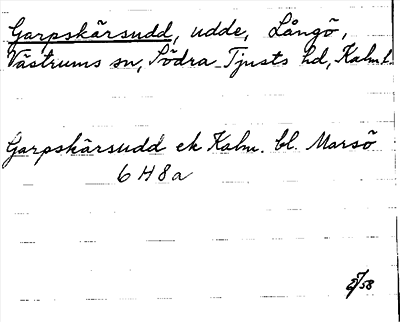 Garpskärsudd, udde, Långö,
Västrums sn, Södra Tjusts hd, Kalm l.
Garpskärsudd ek Kalm. bl. Marsö
6 H 8 a